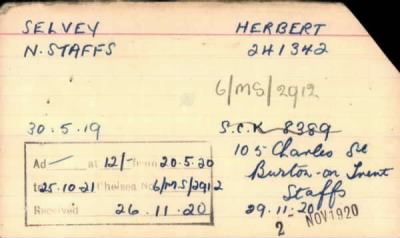 SELVEY HERBERT
N.STAFFS 241342
6/MS/2912
30.5.19 S.C.K 8389
105 Charles St
Burton-on Trent
Staffs
29.11.20
2 NOV 1920
Ad — at 12/- from 20.5.20
to 25.10.21 Chelsea No 6/MS/2912
Received 26.11.20